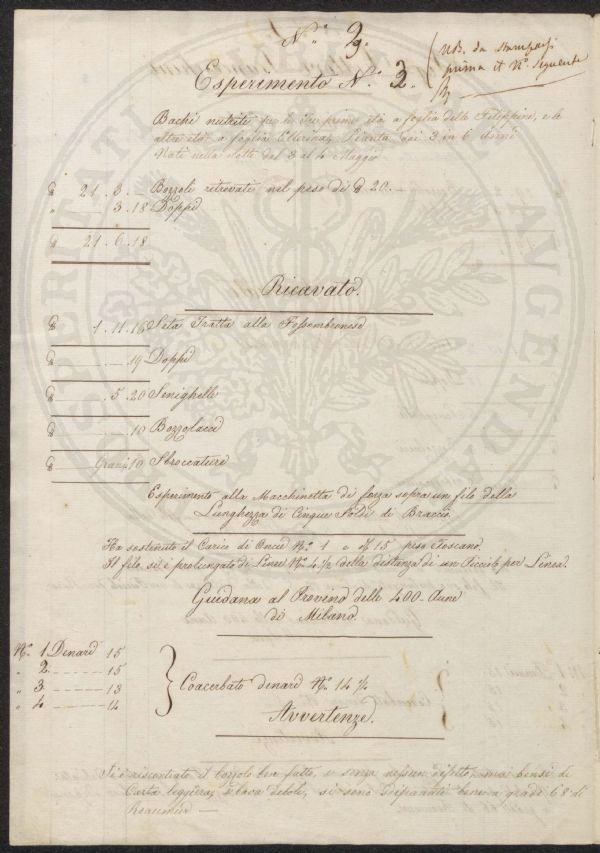 N.º 2.
(NB. da stamparsi
prima il Nº seguente
Esperimento N.º 2.
Bachi nutriti per le due prime età a foglia delle Filippine, e le
altre età a foglia
Nati nella notte del 3 al 4 Maggio
℔ 21. 3. — Bozzoli ritrovati nel peso di ℔ 20. —
" — 3. 18 Doppi
℔ 21. 6. 18
Ricavato.
℔ 1. 11. 16 Seta Tratta alla Fossombronese
℔ — . — 19 Doppi
℔ — . 5. 20 Senighelle
℔ — . — 10 Bozzolacci
℔ — Grani 10 Sbroccature
Esperimento alla Macchinetta di forza sopra un filo della
Lunghezza di Cinque Soldi di Braccio.
Ha sostenuto il Carico di Oncie Nº 1 e 15 peso Toscano.
Il filo si è prolungato di Linee Nº 4½ della distanza di un Picciolo per Linea.
Giudana al Provino delle 400 Aune
di Milano.
Nº 1 Denari 15
" 2 — — — 15
" 3 — — — 13
" 4 — — — 14
Coacerbato denari Nº 14 ¼
Avvertenze.
Si è riscontrato il bozzolo ben fatto, e senza nessun difetto, ma bensì di
Carta leggiera, e bava debole, si sono dipanati bene a gradi 68 di
Reaumur —
PROSPERITATI AVGENDAE